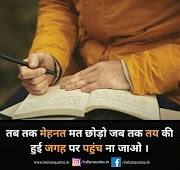 तब तक मेहनत मत छोड़ो जब तक तय की
हुई जगह पर पहुंच ना जाओ ।
www.indianquotes.in /indianquotes.in /indianquotes.in